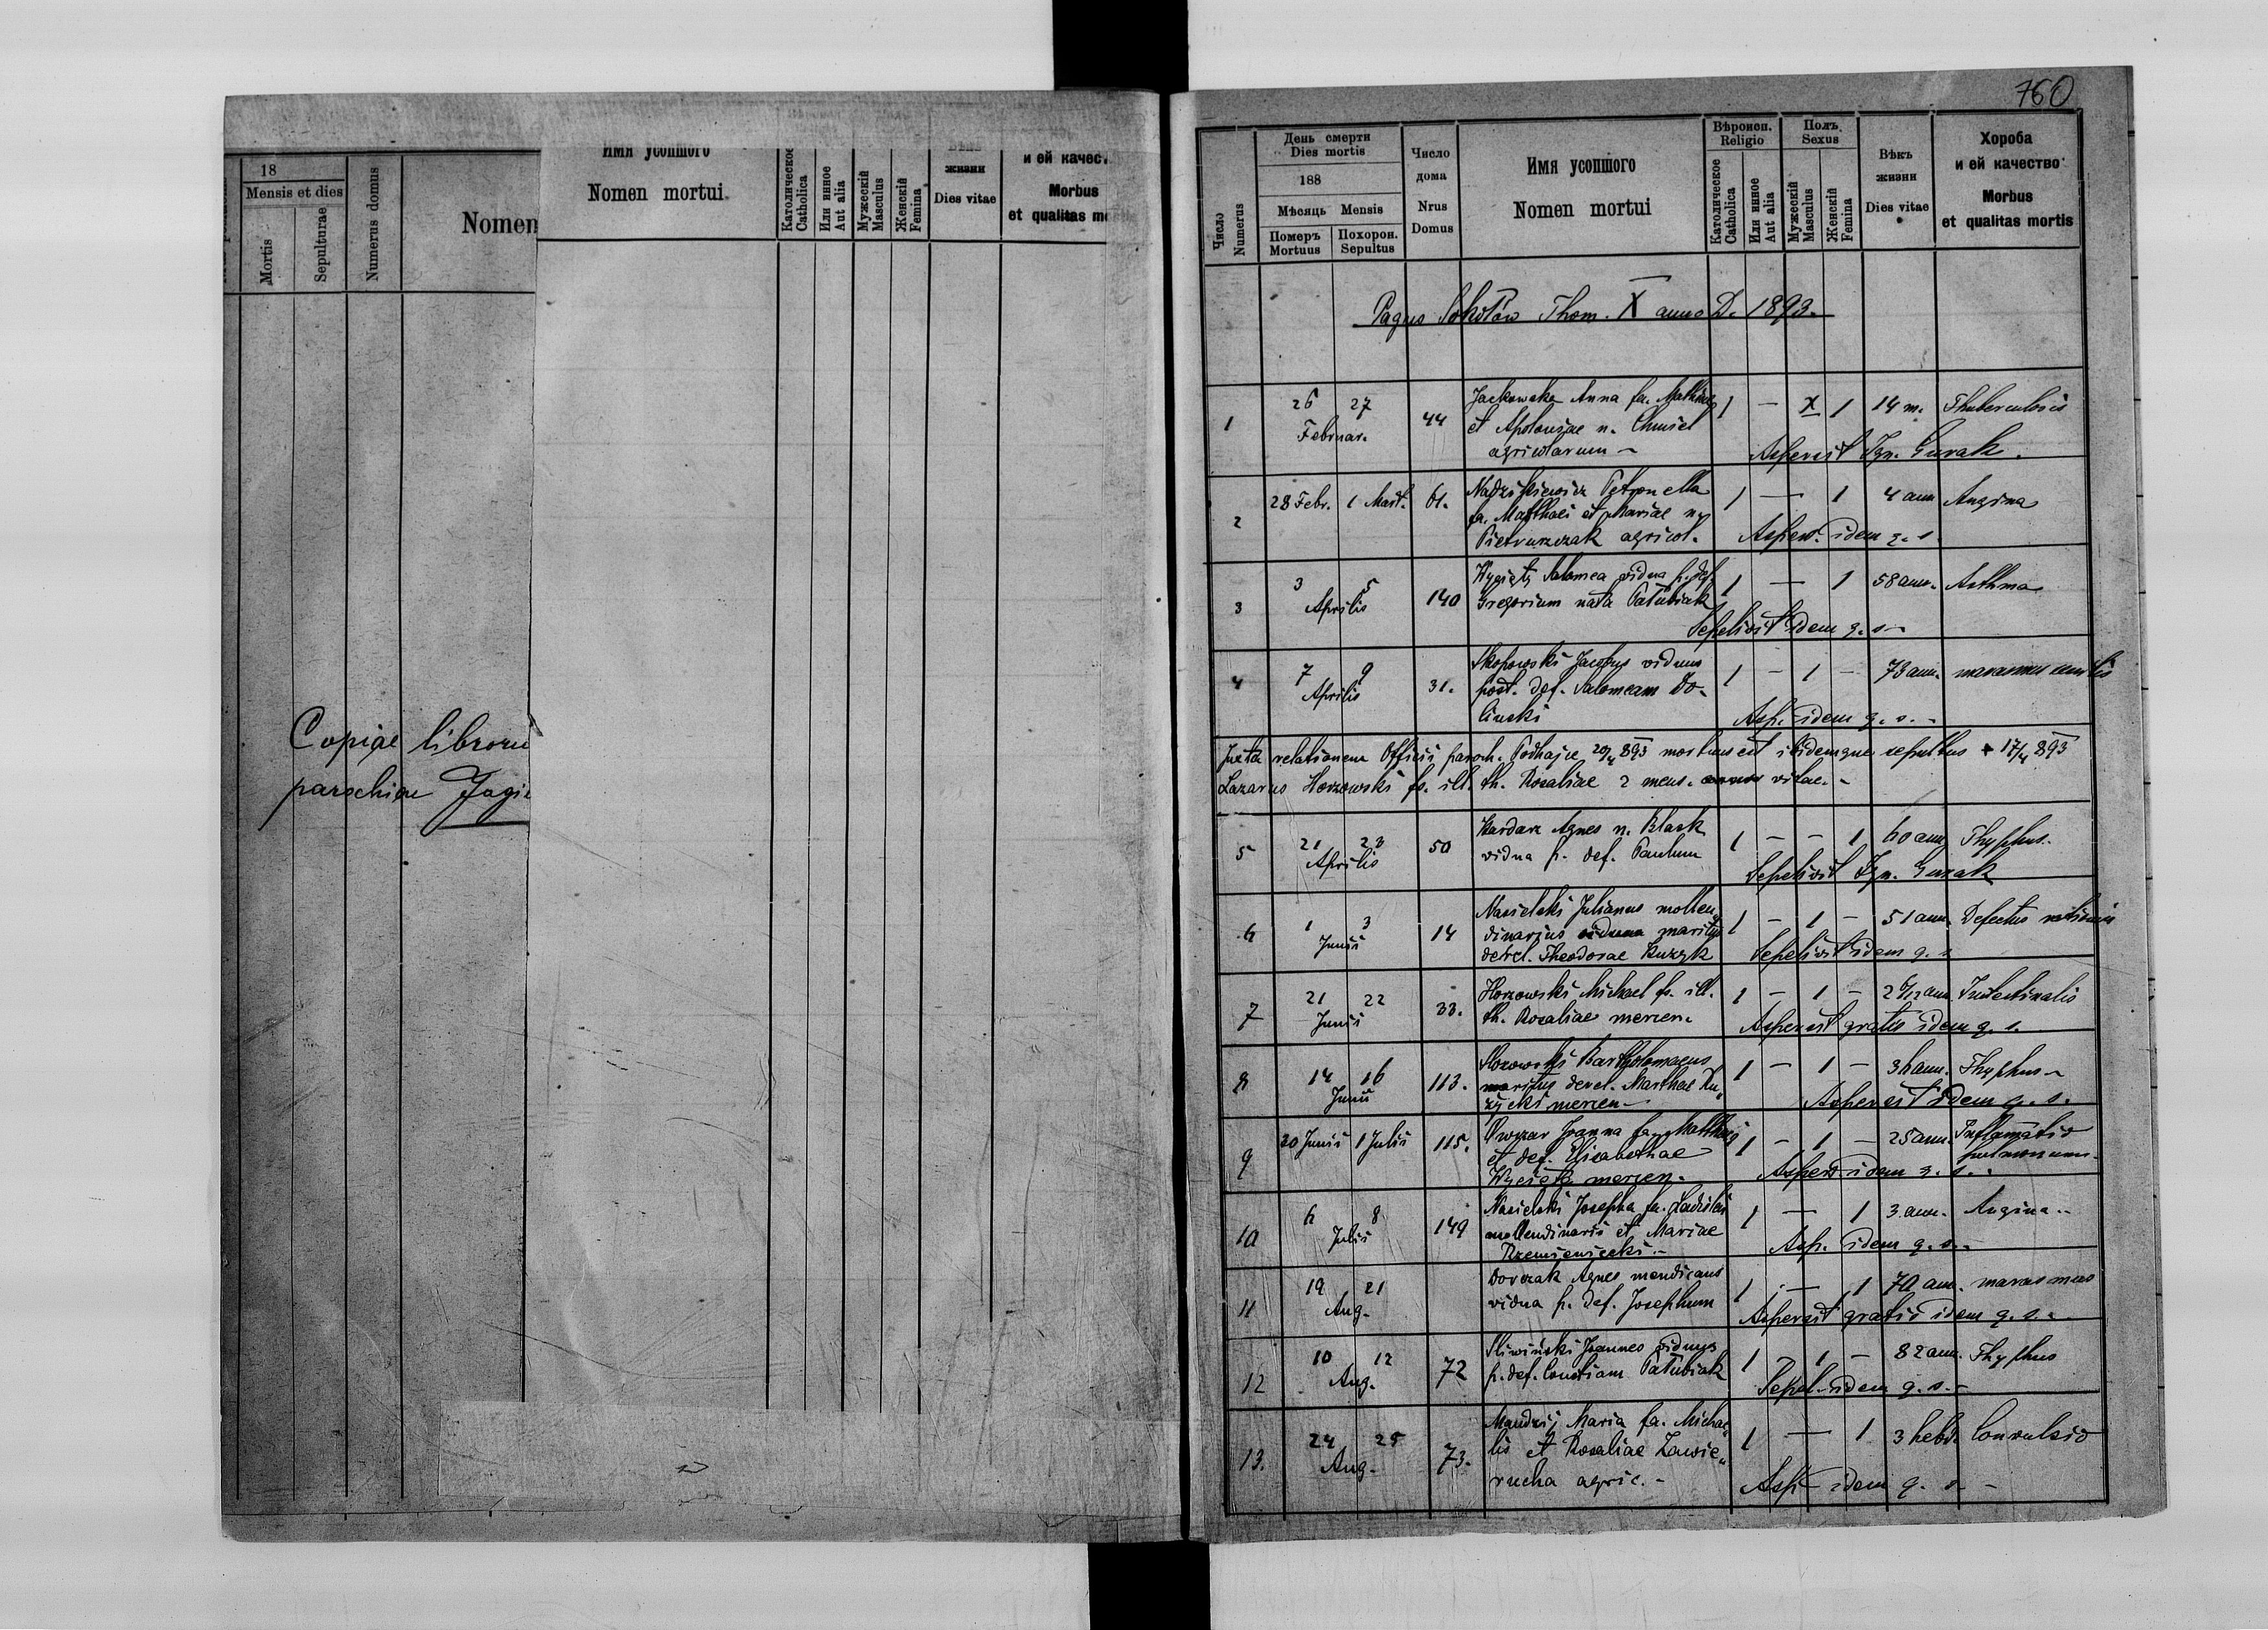 760
18
Mensis et dies
Mortis
Sepulturae
Numerus domus
Nomen
Имя усопшого
Nomen mortui
Католическое
Catholica
Или инное
Aut alia
Мужескій
Masculus
Женскій
Femina
жизни
Dies vitae
и ей качест
Morbus
et qualitas mo
Copiae libroru
parochiae Jagie
Число
Numerus
День смерти
Dies mortis
188
Мѣсяць Mensis
Померъ
Mortuus
Похорон.
Sepultus
Число
дома
Nrus
Domus
Имя усопшого
Nomen mortui
Вѣроисп.
Religio
Католическое
Catholica
Или инное
Aut alia
Полъ
Sexus
Мужескій
Masculus
Женскій
Femina
Вѣкъ
жизни
Dies vitae
Хороба
и ей качество
Morbus
et qualitas mortis
Pagus Sokołów Thom. X anno D. 1893.
1 26 27 Februar. 44 Jackowska Anna fa. Mathiae 1 — X 1 14 m. Thuberculosis
et Apoloniae n. Chmiel
agricolarum — Aspersit Ign. Gurak.
2 28 Febr. 1 Mart. 61. Nadzikiewicz Petronella 1 — 1 4 ann Angina
fa. Matthaei et Mariae n.
Pietruszczak agricol. Aspers. idem q. s.
3 3 5 Aprilis 140 Wyciętý Salomea vidua p. def. 1 — 1 58 ann. Asthma
Gregorium nata Patubiak
Sepelivit idem q. s. —
4 7 9 Aprilis 31. Skopowski Jacobus viduus 1 — 1 — 73 ann. marasmus senilis
post. def. Salomeam Do-
linski Asp. idem q. s. —
Juxta relationem Officii paroch. Podhajce 20/4 893 mortuus est ibidemque sepultus 17/4 893
Lazarus Horzowski fs. ill. th. Rosaliae 2 mens. vitae. —
5 21 23 Aprilis 50 Kardasz Agnes n. Black 1 — — 1 60 ann. Thyphus.
vidua p. def. Paulum
Sepelivit Ign. Gurak
6 1 3 Junii 14 Nasielski Julianus mollen- 1 — 1 — 51 ann. Defectus
dinarius vidua maritus
derel. Theodorae Kuzyk Sepelivit idem q. s.
7 21 22 Junii 33. Horzowski Michael fs. ill. 1 — 1 — 2 ann. Intestinalis
th. Rosaliae mercen. Aspersit gratis idem q. s.
8 14 16 Junii 113. Bartholomaeus 1 — 1 — 36 ann. Thyphus —
maritus derel. Marthae Ru-
życki mercen — Aspersit idem q. s.
9 30 Junii 1 Julii 115. Owczar Joanna fa. Matthaei 1 — 1 — 25 ann. Inflamatio
et def. Elisabethae pulmonum.
Wycięta mercen. Aspers. idem q. s. —
10 6 8 Julii 149 Nasielski Josepha fa. Ladislai 1 — 1 3. ann. Angina —
mollendinarii et Mariae
Krzemieniecki — Asp. idem q. s. —
11 19 21 Aug. Dorczak Agnes mendicans 1 — 1 70 ann. marasmus
vidua p. def. Josephum
Aspersit gratis idem q. s. —
12 10 12 Aug. 72 Sliwiński Joannes viduus 1 — 1 — 82 ann. Thyphus
p. def. Constiam Patubiak
Sepel. idem q. s. —
13. 24 25 Aug. 73. Mandzij Maria fa. Michae- 1 — 1 3 hebd. Convulsio
lis et Rosaliae Zawie-
rucha agric. — Asp. idem q. s. —